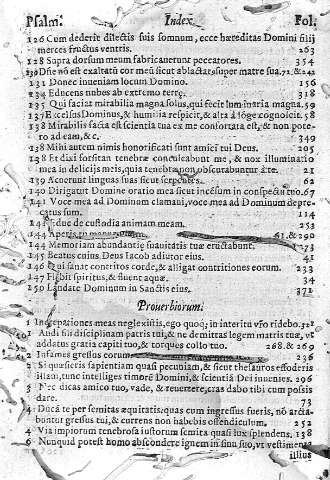 Psalm. Index Fol.
126 Cum dederit dilectis suis somnum, ecce hæreditas Domini filij
merces fructus ventris. 263
128 Supra dorsum meum fabricauerunt peccatores. 354
130 Dñe nõ est exaltatũ cor meũ sicut ablactatꝰ super matre sua. 72.&242
131 Donec inueniam locum Domino. 156
134 Educens nubes ab extremo terræ. 318
135 Qui facit mirabilia magna solus, qui fecit luminaria magna. 59
137 Excelsus Dominus, & humilia respicit, & alta à lõge cognoicit. 58
138 Mirabilis facta est scientia tua ex me confortata est, & non pote-
ro ad eam, &c. 349
138 Mihi autem nimis honorificati sunt amici tui Deus. 205
138 Et dixi forsitan tenebræ conculcabunt me, & nox illuminatio
mea in delicijs meis, quia tenebræ non obscurabuntur à te. 21
139 Acuerunt linguas suas sicut serpentes. 62
140 Dirigatur Domine oratio mea sicut incẽsum in conspectu tuo. 67
141 Voce mea ad Dominum clamaui, voce mea ad Dominum depre-
catus sum. 114
141 Educ de custodia animam meam. 253
144 Aperis tu 61.&290
144 Memoriam abundantiæ suauitatis tuæ eructabunt. 73
145 Beatus cuius Deus Iacob adiutor eius. 41
146 Qui sanat contritos corde, & alligat contritiones eorum. 233
147 Flabit spiritus, & fluent aquæ. 34
150 Laudate Dominum in Sanctis eius. 371
Prouerbiorum.
1 Increpationes meas neglexistis, ego quoq; in interitu vr̃o ridebo. 32
1 Audi fili disciplinam patris tui, & ne dimittas legem matris tuæ, vt
addatur gratia capiti tuo, & torques collo tuo. 268.&269
2 Infames gressus eorum 236
2 Si quæsieris sapientiam quasi pecuniam, & sicut thesauros effoderis
illam, tunc intelliges timorẽ Domini, & scientiã Dei inuenies. 296
3 Nec dicas amico tuo, vade, & reuertere, cras dabo tibi cum possis
dare. 73
4 Ducã te per semitas æquitatis: quas cum ingressus fueris, nõ arcta-
buntur gressus tui, & currens non habebis offendiculum. 252
4 Via impiorum tenebrosa iustorum semita quasi lux splendens. 138
6 Nunquid potest homo abscondere ignem in sinu suo, vt vestimenta
illius